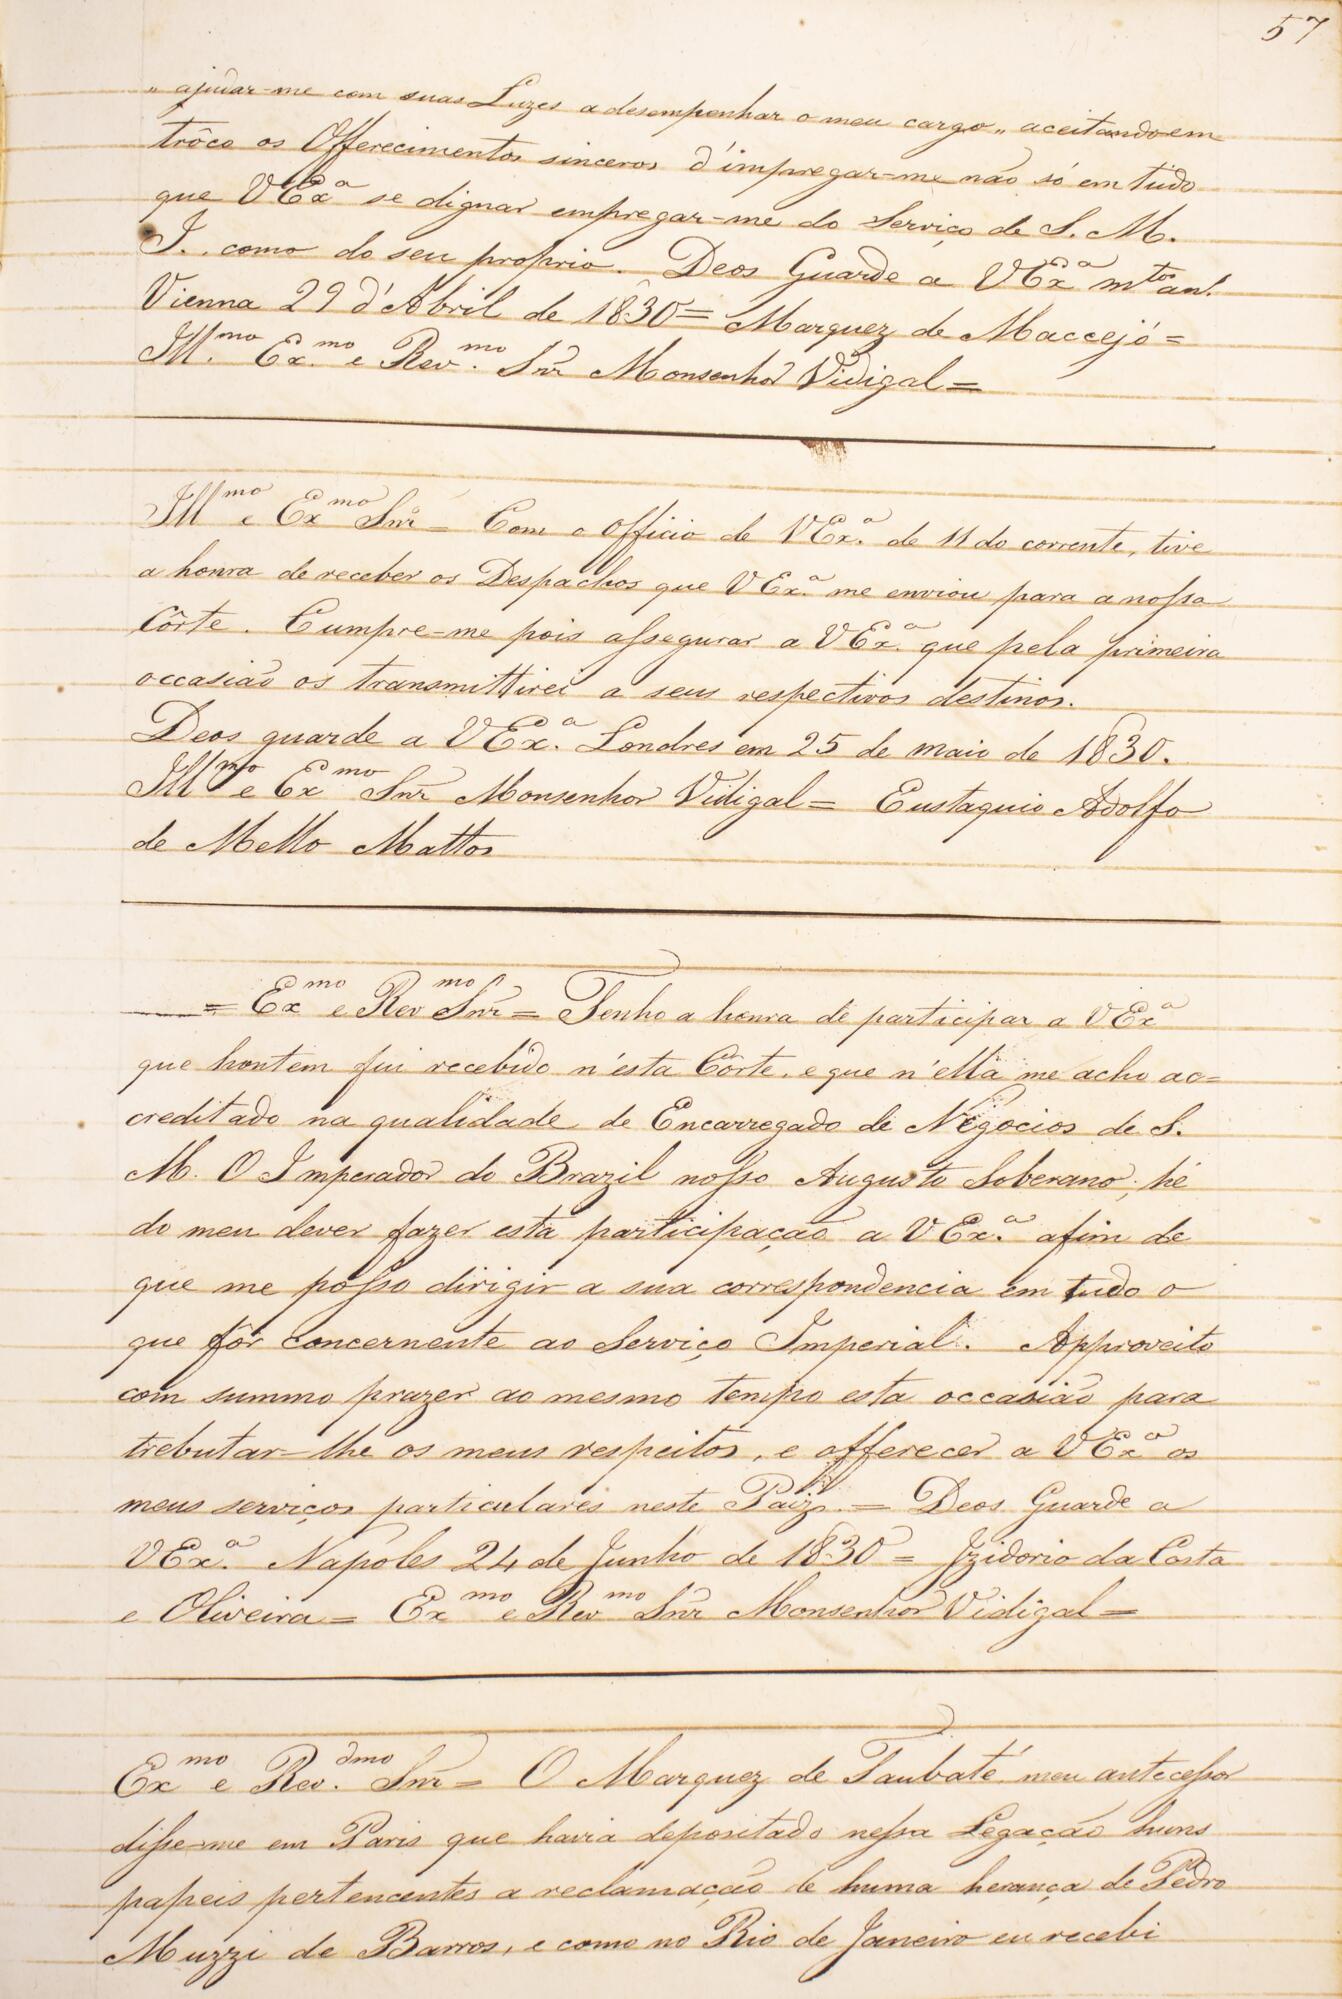 57
„ ajudar-me com suas Luzes a desempenhar o meu cargo „ aceitando em
trôco os Offerecimentos sinceros d'impregar-me não só em tudo
que VExª se dignar empregar-me do Serviço de S. M.
I. como do seu proprio. Deos Guarde a VExª mtos ans.
Vienna 29 d'Abril de 1830 = Marquez de Maccejó =
Illmo. Exmo. e Revmo. Snr Monsenhor Vidigal =
Illmo e Exmo Snr = Com o Officio de VExª. de 11 do corrente, tive
a honra de receber os Despachos que VExª. me enviou para a nossa
Côrte. Cumpre-me pois assegurar a VExª. que pela primeira
occasião os transmittirei a seus respectivos destinos.
Deos guarde a VExª. Londres em 25 de maio de 1830.
Illmo e Exmo Snr Monsenhor Vidigal = Eustaquio Adolfo
de Mello Mattos
= Exmo e Revmo Snr = Tenho a honra de participar a VExª
que hontem fui recebido n'esta Côrte, e que n'ella me acho ac=
creditado na qualidade de Encarregado de Negocios de S.
M. O Imperador do Brazil nosso Augusto Soberano; hé
do meu dever fazer esta participação a VExª. afim de
que me posso dirigir a sua correspondencia em tudo o
que fôr concernente ao Serviço Imperial. Approveito
com summo prazer ao mesmo tempo esta occasião para
trebutar-lhe os meus respeitos, e offerecer a VExª os
meus serviços particulares neste Paiz. = Deos Guarde a
VExª. Napoles 24 de Junho de 1830 = Izidorio da Costa
e Oliveira = Exmo e Revmo Snr Monsenhor Vidigal =
Exmo e Rev.dmo Snr = O Marquez de Taubaté meu antecessor
disse-me em Paris que havia depositado nessa Legação huns
papeis pertencentes a reclamação de huma herança de Pedro
Muzzi de Barros, e como no Rio de Janeiro eu recebi